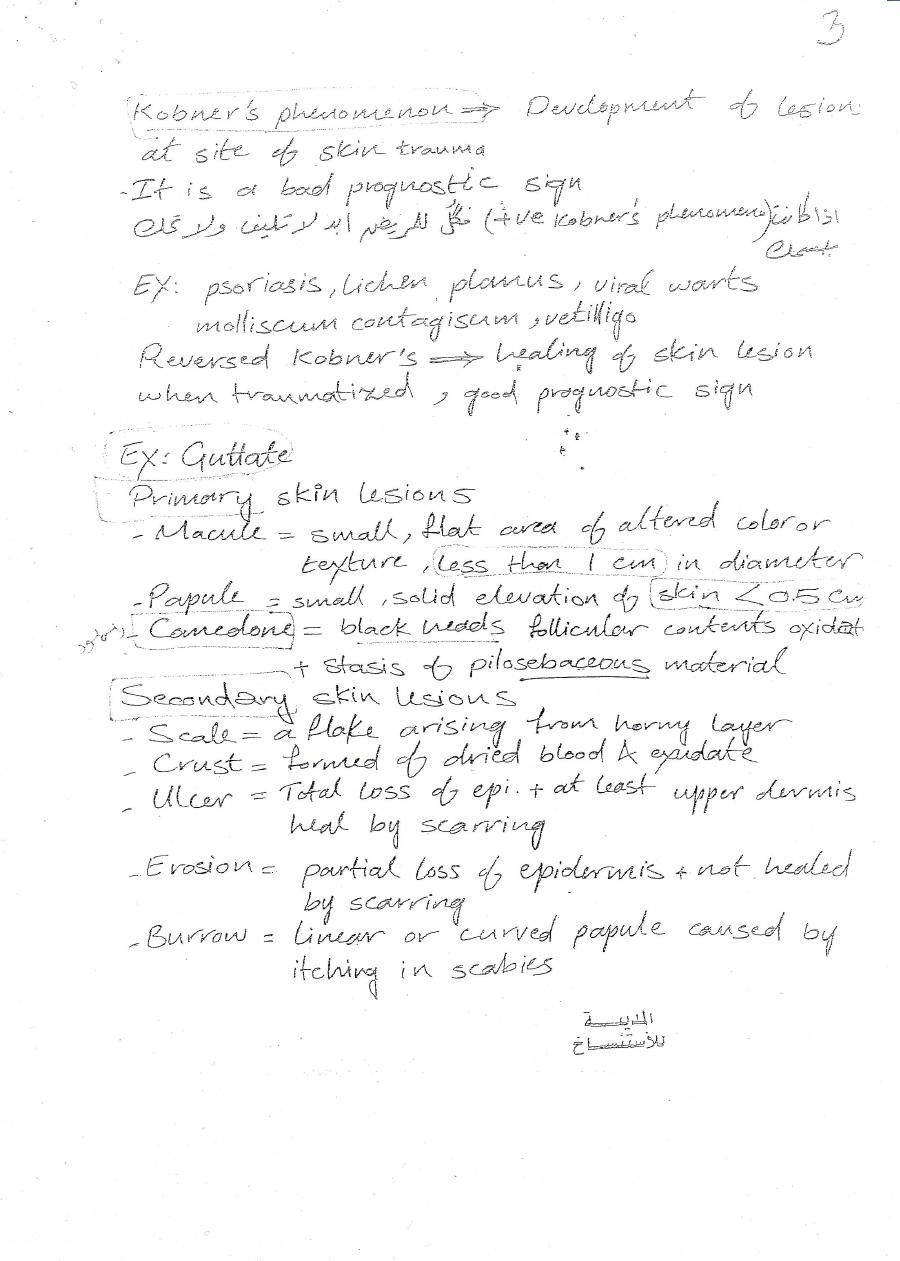 3
Kobner's phenomenon ⇒ Development of lesion
at site of skin trauma
- It is a bad prognostic sign
اذا كانت (+ve Kobner's phenomeno) فكل للمريض ابد لا تليف ولا تحك
بجسمك
EX: psoriasis, lichen planus, viral warts
molliscum contagiscum, vetilligo
Reversed Kobner's ⇒ healing of skin lesion
when traumatized, good prognostic sign
Ex: Guttate
Primary skin lesions
- Macule = small, flat area of altered color or
texture, less than 1 cm in diameter
- Papule = small, solid elevation of skin < 0.5 cm
- Comedone = black heads follicular contents oxidat
+ stasis of pilosebaceous material
Secondary skin lesions
- Scale = a flake arising from horny layer
- Crust = formed of dried blood & exudate
- Ulcer = Total loss of epi. + at least upper dermis
heal by scarring
- Erosion = partial loss of epidermis + not healed
by scarring
- Burrow = linear or curved papule caused by
itching in scabies
للأستنساخ